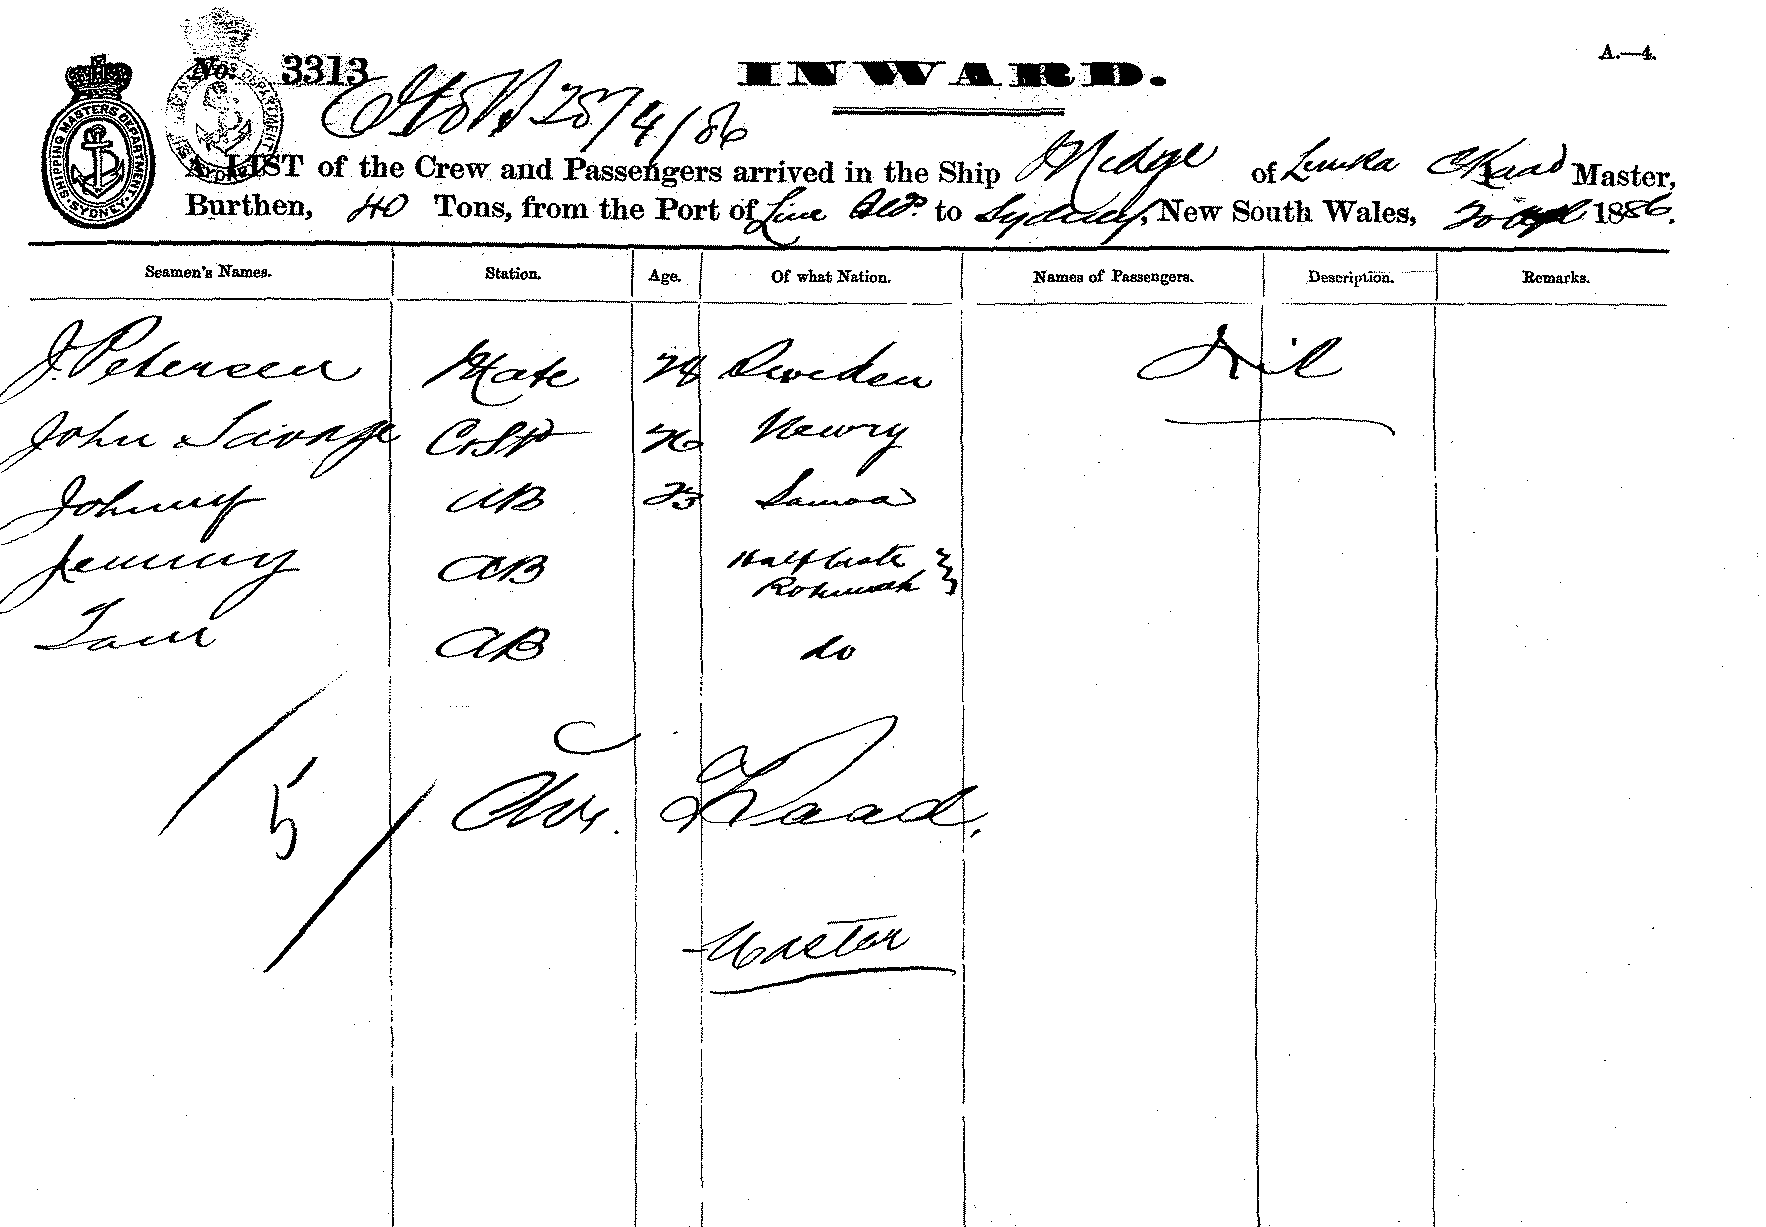 A.—4.
No. 3313
INWARD.
28/4/86
SHIPPING MASTERS DEPARTMENT SYDNEY
A LIST of the Crew and Passengers arrived in the Ship Midge of Levuka C Kaad Master,
Burthen, 40 Tons, from the Port of Line Slds. to Sydney, New South Wales, 20 Apl 1886.
Seamen's Names. Station. Age. Of what Nation. Names of Passengers. Description. Remarks.
J. Petersen Mate 28 Sweden Nil
John Savage CkStd 26 Newry
Johnny AB 23 Samoa
Jemmy AB Half Caste
Rotumah
Tom AB do
5
Chr. Kaad.
Master